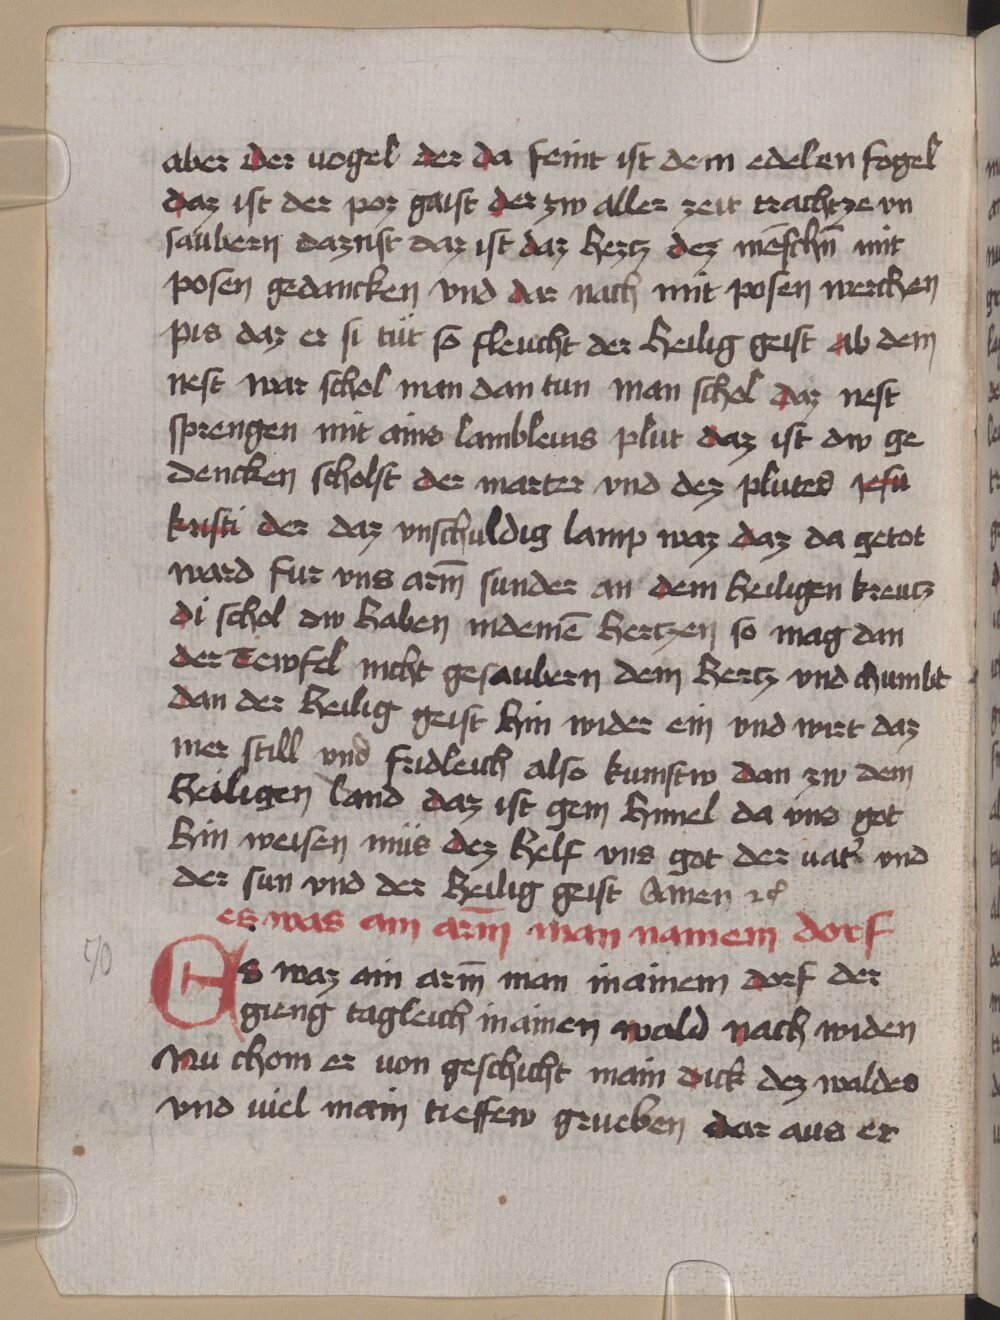 aber der uogel der da feint ist dem edelen fogel
daz ist der poz gaist der zw aller zeit trachtze vn
saubern daz nist daz ist daz hertz dez mēschn̄ mit
posen gedancken vnd dar nach mit posen werchen
pis daz er si tüt so fleucht der heilig geist ab dem
nest war schol man dan tun man schol daz nest
sprengen mit ains lambleins plut daz ist dw ge
dencken scholst der marter vnd dez plutes jesu
kristi der daz vnschuldig lamp waz daz da getot
ward fur vns arm̄ sunder an dem heiligen kreutz
di schol dw haben indeinē hertzen so mag dan
der Tewfel nicht gesaubern dem hertz vnd chumbt
dan der heilig geist hin wider ein vnd wirt daz
mer still vnd fridleich also kumstw dan zw dem
heiligen land daz ist gem himel da vns got
hin weisen müs dez helf vns got der uat' vnd
der sun vnd der heilig geist Amen ⁊c
es was ain arm̄ man nainem dorf
70
Es waz ain arm̄ man inainem dorf der
gieng tagleich inainen wald nach widen
Nu chom er von geschicht inain dick dez waldes
vnd uiel inain tieffew grueben dar aus er